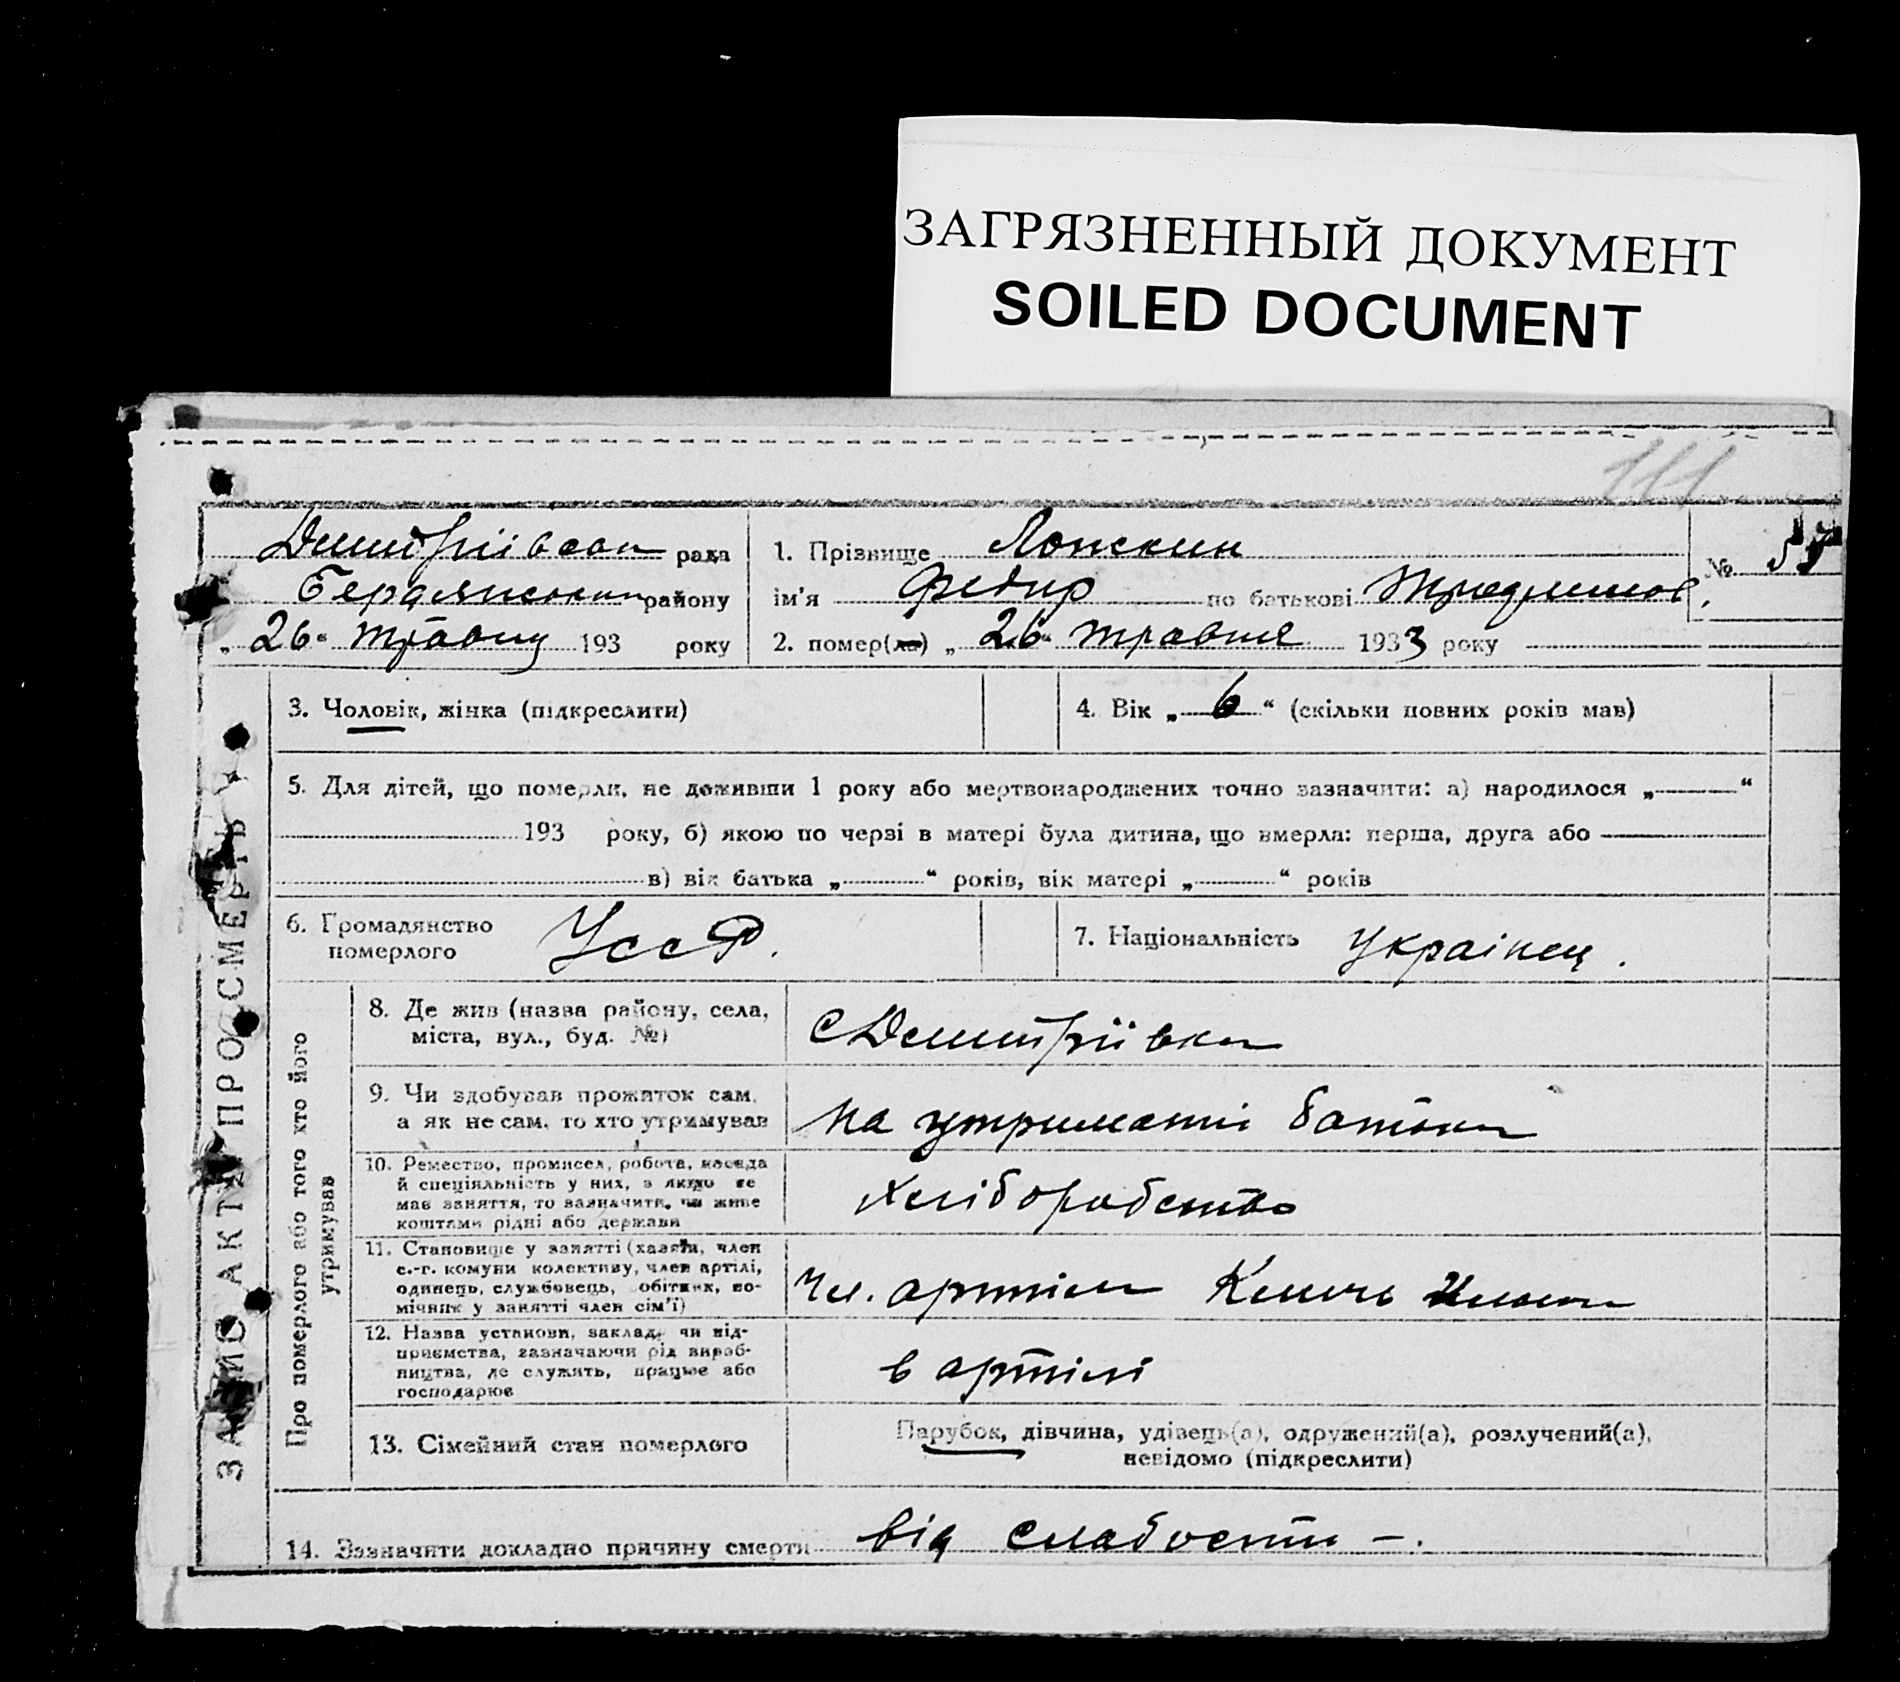 ЗАГРЯЗНЕННЫЙ ДОКУМЕНТ
SOILED DOCUMENT
111
ЗАПИС АКТУ ПРО СМЕРТЬ
Дмитріівська рада
Бердянського району
„ 26 “ травня 193 року
1. Прізвище
№
ім'я Федир по батькові
2. помер(ла) „ 26 “ травня 1933 року
3. Чоловік, жінка (підкреслити)
4. Вік „ 6 “ (скільки повних років мав)
5. Для дітей, що померли, не доживши 1 року або мертвонароджених точно зазначити: а) народилося „ “
193 року, б) якою по черзі в матері була дитина, що вмерла: перша, друга або
в) вік батька „ “ років, вік матері „ “ років
6. Громадянство
померлого УССР.
7. Національність Українец.
Про померлого або того кто його
утримував
8. Де жив (назва району, села,
міста, вул., буд. №)
с Дмитріівка
9. Чи здобував прожиток сам,
а як не сам, то хто утримував
на утриманні батька
10. Ремество, промисел, робота, посада
й спеціяльність у них, а якщо не
має заняття, то зазначити, чи живе
коштами рідні або держави
Хліборобство
11. Становище у занятті (хазяїн, член
с.-г. комуни колективу, член артілі,
одинець, службовець, робітник, по-
мічник у занятті член сім'ї)
Чл. артіли
12. Назва установи, закладу чи під-
приємства, зазначаючи рід вироб-
ництва, де служить, працює або
господарює
в артілі
13. Сімейний стан померлого
Парубок, дівчина, удівець(а), одружений(а), розлучений(а),
невідомо (підкреслити)
14. Зазначити докладно причину смерти від слабости